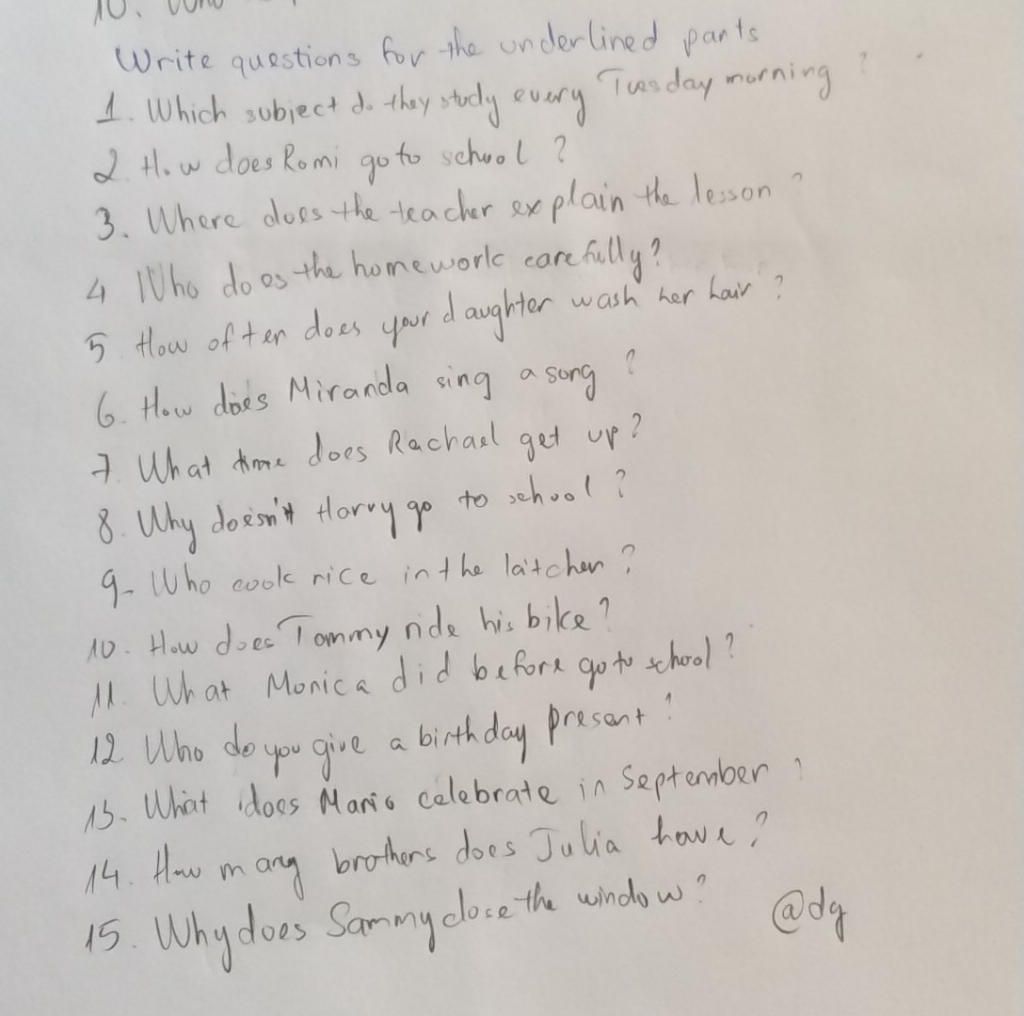 10. Who
Write questions for the underlined parts
1. Which subject do they study every Tuesday morning ?
2. How does Romi go to school ?
3. Where does the teacher explain the lesson ?
4 Who does the homework carefully?
5 How often does your daughter wash her hair ?
6. How does Miranda sing a song ?
7 What time does Rachael get up?
8. Why doesn't Harry go to school ?
9- Who cook rice in the laitchen ?
10. How does Tommy ride his bike?
11. What Monica did before go to school ?
12 Who do you give a birthday present ?
13. What does Mario celebrate in September ?
14. How many brothers does Julia have ?
15. Why does Sammy close the window?
@dg